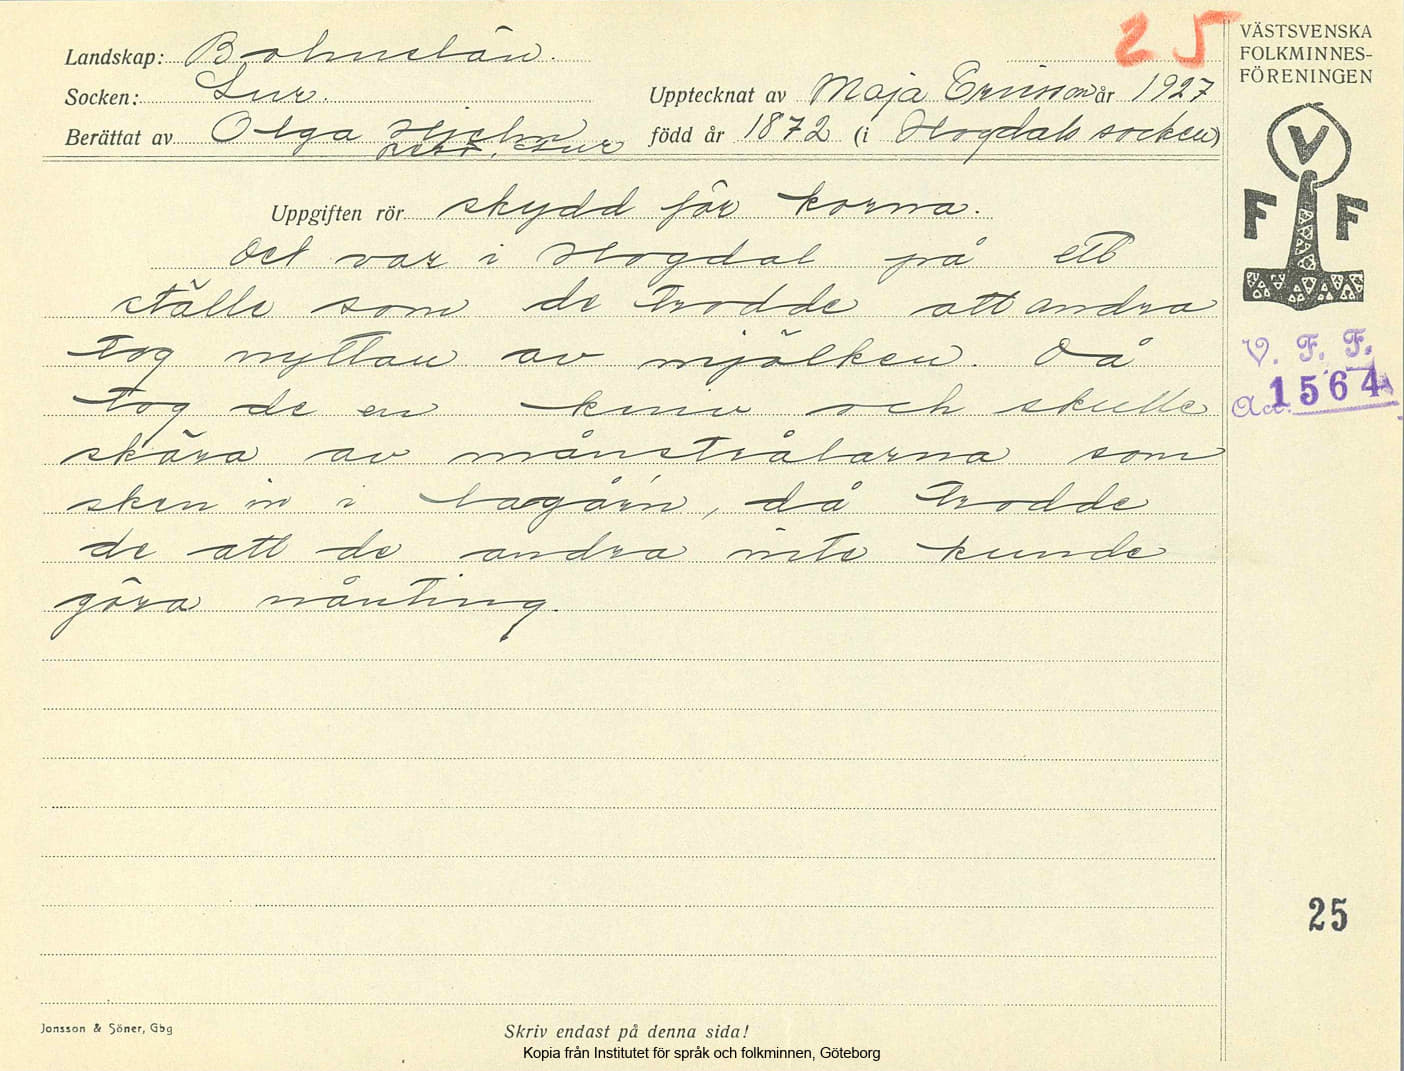 25
VÄSTSVENSKA
FOLKMINNES-
FÖRENINGEN
Landskap: Bohuslän.
Socken: Lur.
Upptecknat av Maja Ericsson år 1927
Berättat av Olga Hjelm
Lur
född år 1872 (i Hogdals socken)
V
F F
Uppgiften rör skydd för korna.
Det var i Hogdal på ett
ställe som de trodde att andra
tog nyttan av mjölken. Då
tog de en kniv och skulle
skära av månstrålarna som
sken in i lagårn, då trodde
de att de andra inte kunde
göra nånting.
V. F. F.
Acc. 1564
25
Jonsson & Söner, Gbg
Skriv endast på denna sida!
Kopia från Institutet för språk och folkminnen, Göteborg